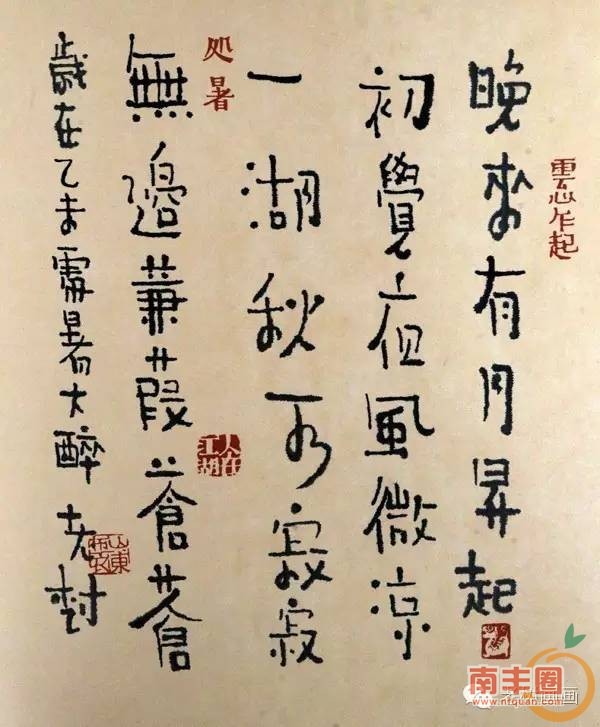 雲心乍起
晚來有月昇起
初覺夜風微凉
一湖秋寂寂
处暑
無邊蒹葭蒼蒼
人在江湖
歲在乙未處暑大醉 老樹
山東布衣
南丰圈
www.nfquan.com